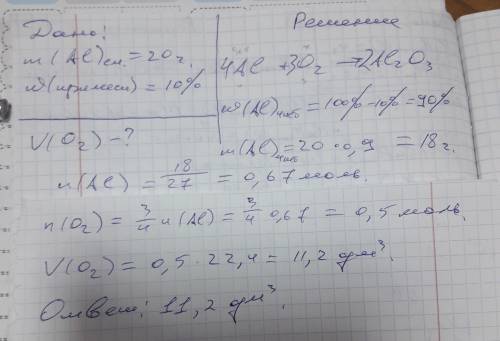 Дано:
m(Al)см. = 20г.
w(примеси) = 10%
V(O₂) - ?
Решение
4Al + 3O₂ → 2Al₂O₃
w(Al)чист = 100% - 10% = 90%
m(Al)чист = 20 · 0,9 = 18г.
n(Al) = 18/27 = 0,67 моль.
n(O₂) = 3/4 n(Al) = 3/4 0,67 = 0,5 моль.
V(O₂) = 0,5 · 22,4 = 11,2 дм³.
Ответ: 11,2 дм³.